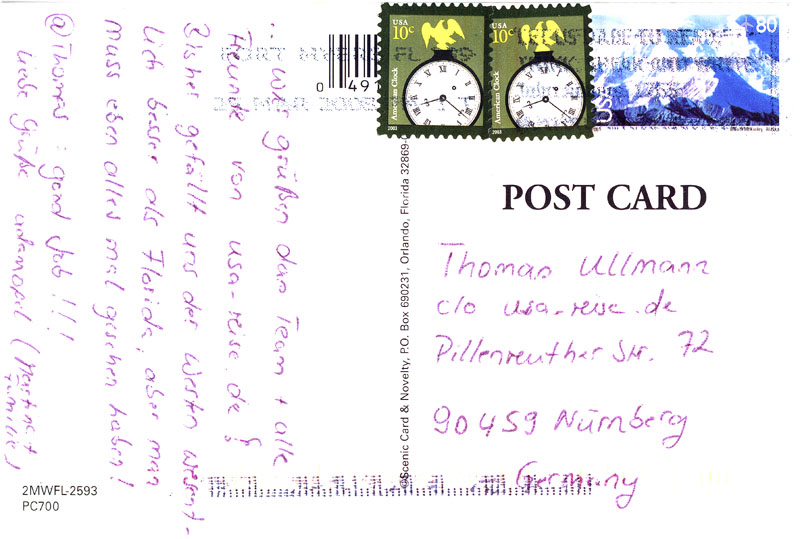 ... wir grüßen das Team + alle
Freunde von usa-reise.de !
Bisher gefällt uns der Westen wesent-
lich besser als Florida, aber man
muss eben alles mal gesehen haben!
@Thomas: good Job!!!
liebe Grüße (Martina +
Familie)
USA
10c
American Clock
2003
USA
10c
American Clock
2003
80
USA
FORT MYERS FL
0 49
POST CARD
Thomas Ullmann
c/o usa-reise.de
Pillenreuther Str. 72
90459 Nürnberg
Germany
©Scenic Card & Novelty, P.O. Box 690231, Orlando, Florida 32869-
2MWFL-2593
PC700